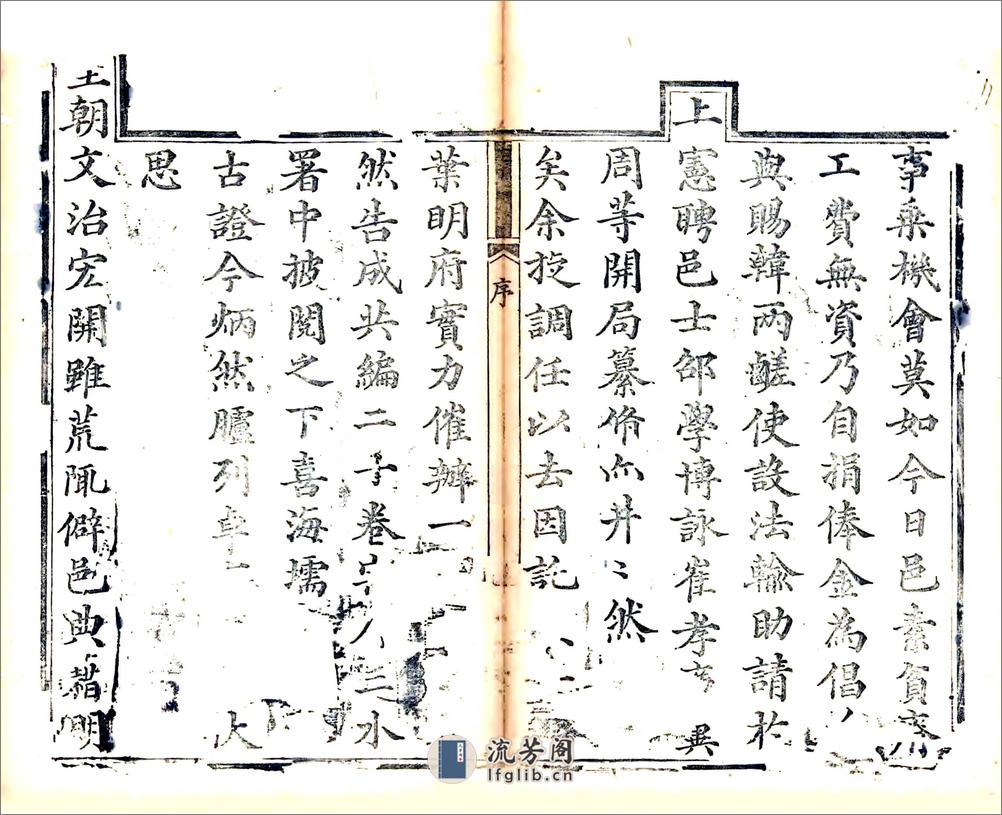 事乗機會莫如今日邑素貧
工費無資乃自捐俸金為倡
與賜韓兩鹺使設法輸助請於
上
憲聘邑士邵學博詠崔孝
周等開局纂脩亦井〻然
矣余旋調任以去因託
序
葉明府實力催辦一
然告成共編二十卷 三水
署中披閱之下喜海壖
古證今炳然臚列 大
思
聖朝文治宏開雖荒陬僻邑典籍明
流芳阁
lfglib.cn